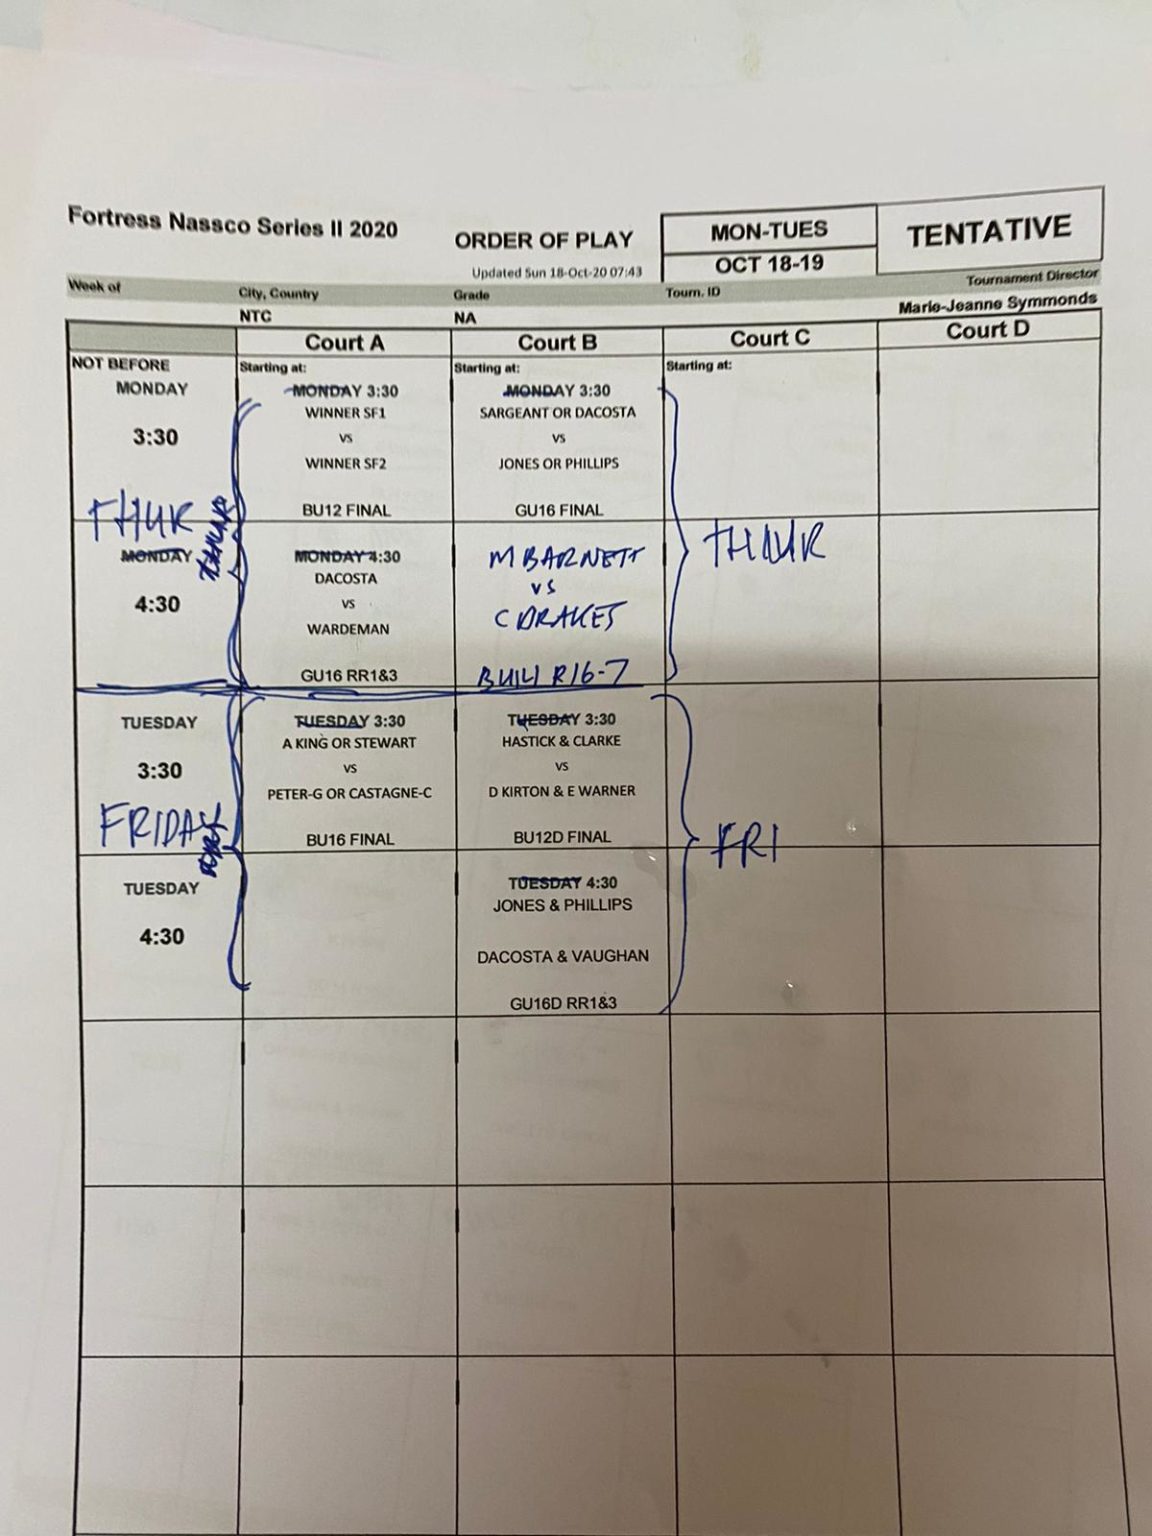 Fortress Nassco Series II 2020
ORDER OF PLAY
Updated Sun 18-Oct-20 07:43
MON-TUES
OCT 18-19
TENTATIVE
Week of
City, Country
Grade
Tourn. ID
Tournament Director
NTC
NA
Marie-Jeanne Symmonds
Court A
Court B
Court C
Court D
NOT BEFORE
Starting at:
Starting at:
Starting at:
MONDAY
3:30
THUR
MONDAY 3:30
WINNER SF1
VS
WINNER SF2
BU12 FINAL
MONDAY 3:30
SARGEANT OR DACOSTA
VS
JONES OR PHILLIPS
GU16 FINAL
THUR
MONDAY
4:30
MONDAY 4:30
DACOSTA
VS
WARDEMAN
GU16 RR1&3
M BARNETT
VS
C DRAKES
R16-7
TUESDAY
3:30
FRIDAY
TUESDAY 3:30
A KING OR STEWART
VS
PETER-G OR CASTAGNE-C
BU16 FINAL
TUESDAY 3:30
HASTICK & CLARKE
VS
D KIRTON & E WARNER
BU12D FINAL
FRI
TUESDAY
4:30
TUESDAY 4:30
JONES & PHILLIPS
DACOSTA & VAUGHAN
GU16D RR1&3